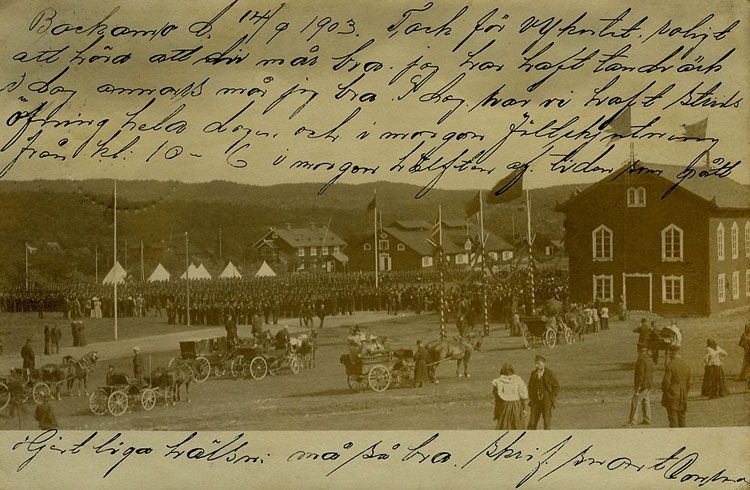 Backamo d. 14/9 1903. Tack för vykortet. roligt
att höra att du mår bra. jag har haft tandvärk
i dag annars mår jag bra. I dag har vi haft strids
öfning hela dagen och i morgon fältskjutning
från kl: 10 - 6 i morgon hälften af tiden som gått
Hjertliga hälsn: må så bra. skrif snart